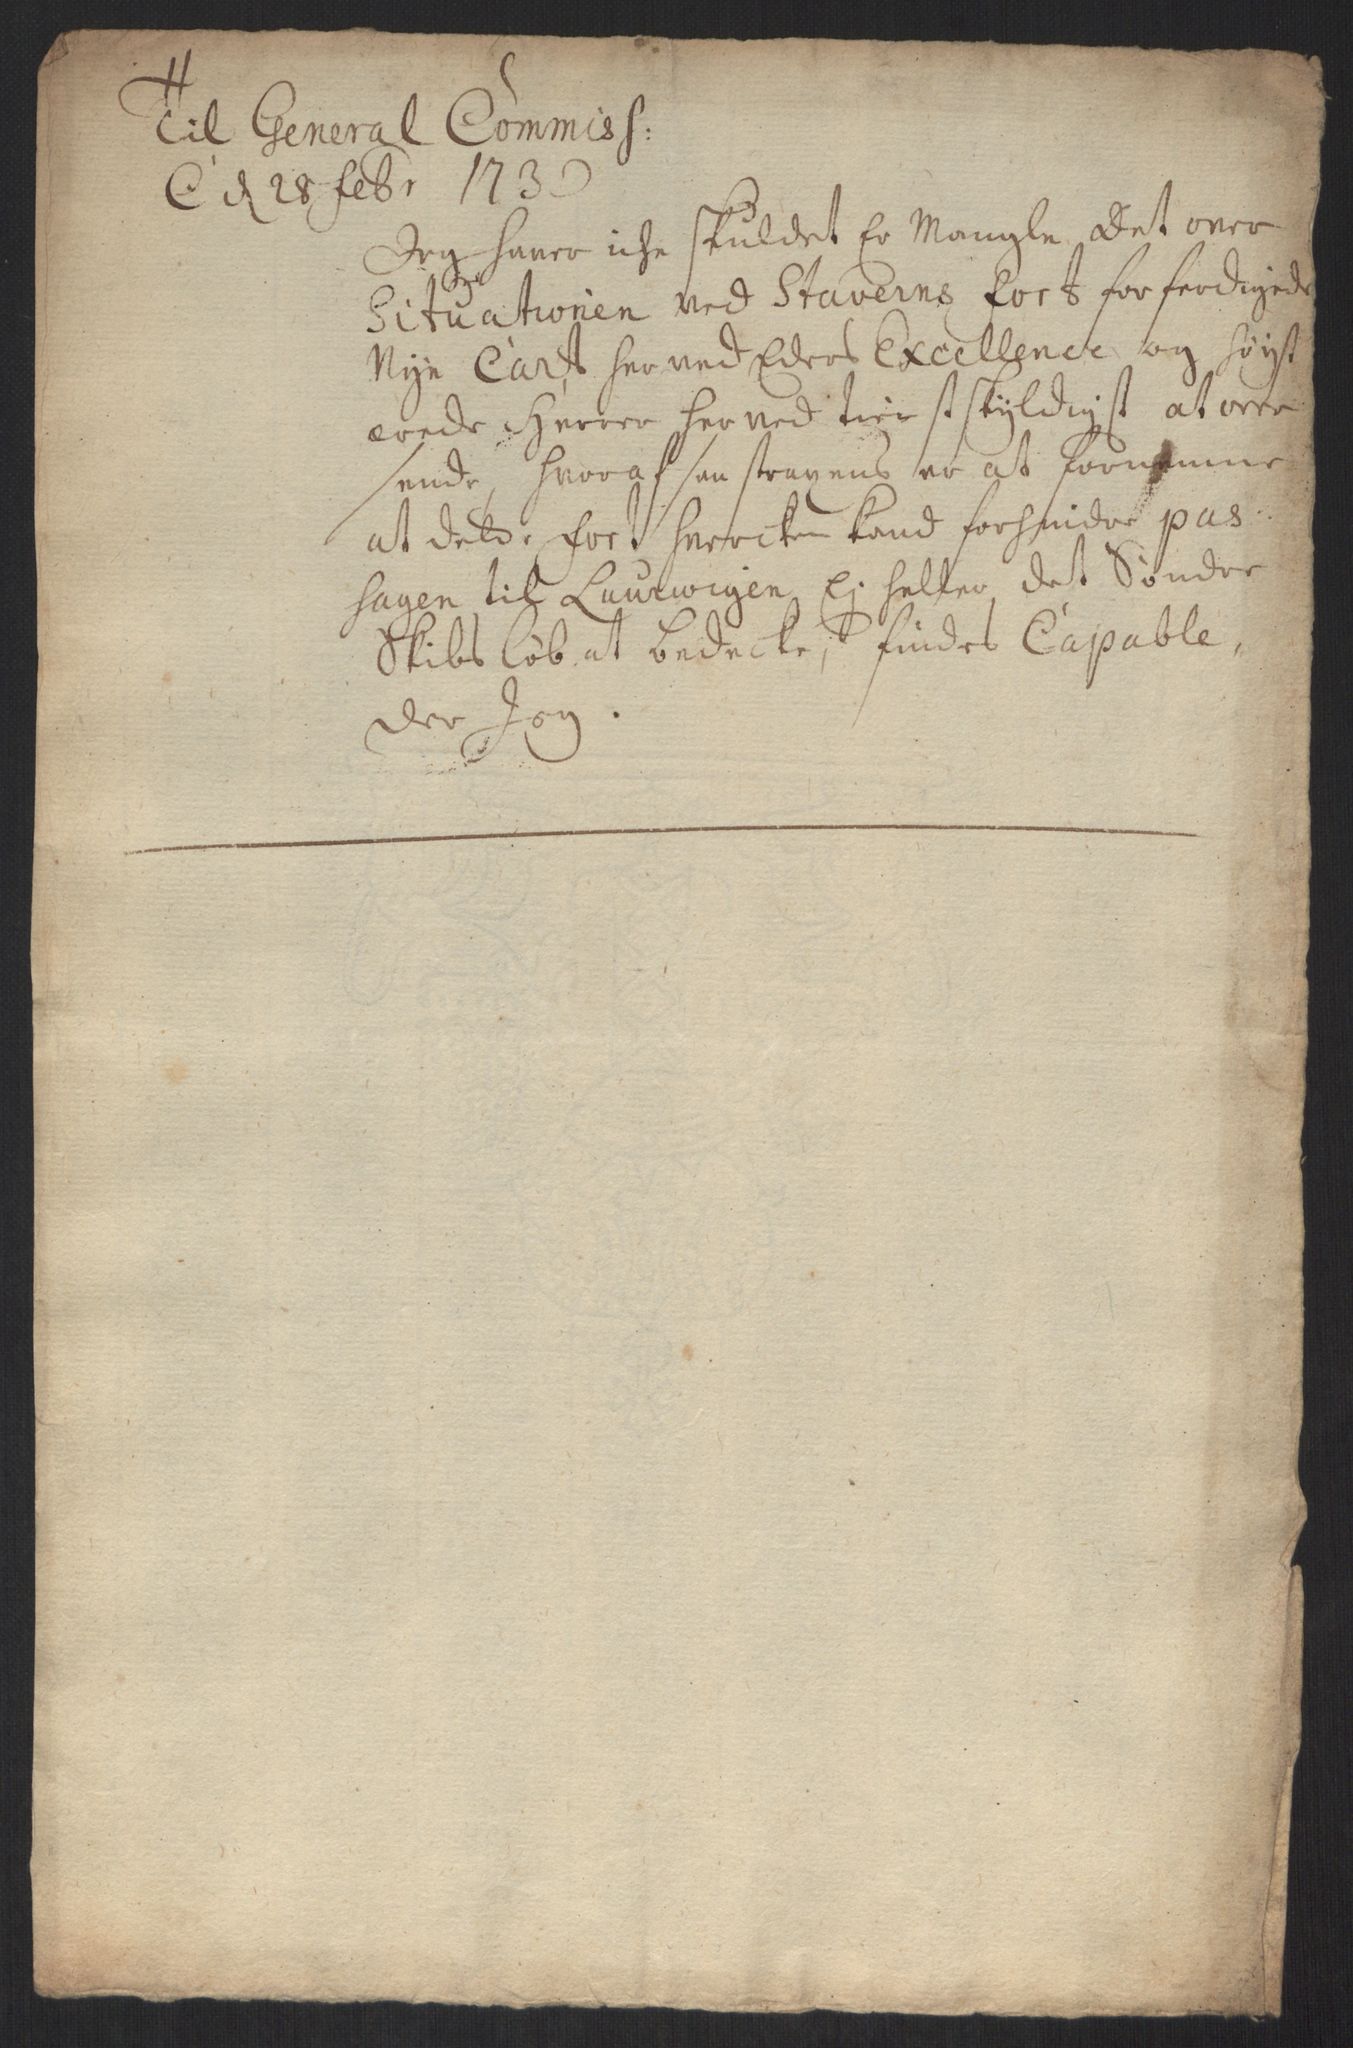 Til General Commiss:
C d 28 febr 1730
Jeg haver iche skuldet Er Mangle det over
Situationen ved Staverns fort forferdigede
Nye Cart her ved Eders Excellence og høyst
ærede Herrer her ved tienstskyldigst at over
sende, hvoraf saa strax er at fornemme
at delde fort hvercken kand forhindre pas
sagen til Laurwigen Ej heller det Søndre
Skibs løb at bedecke, findes Capable,
der Jeg.